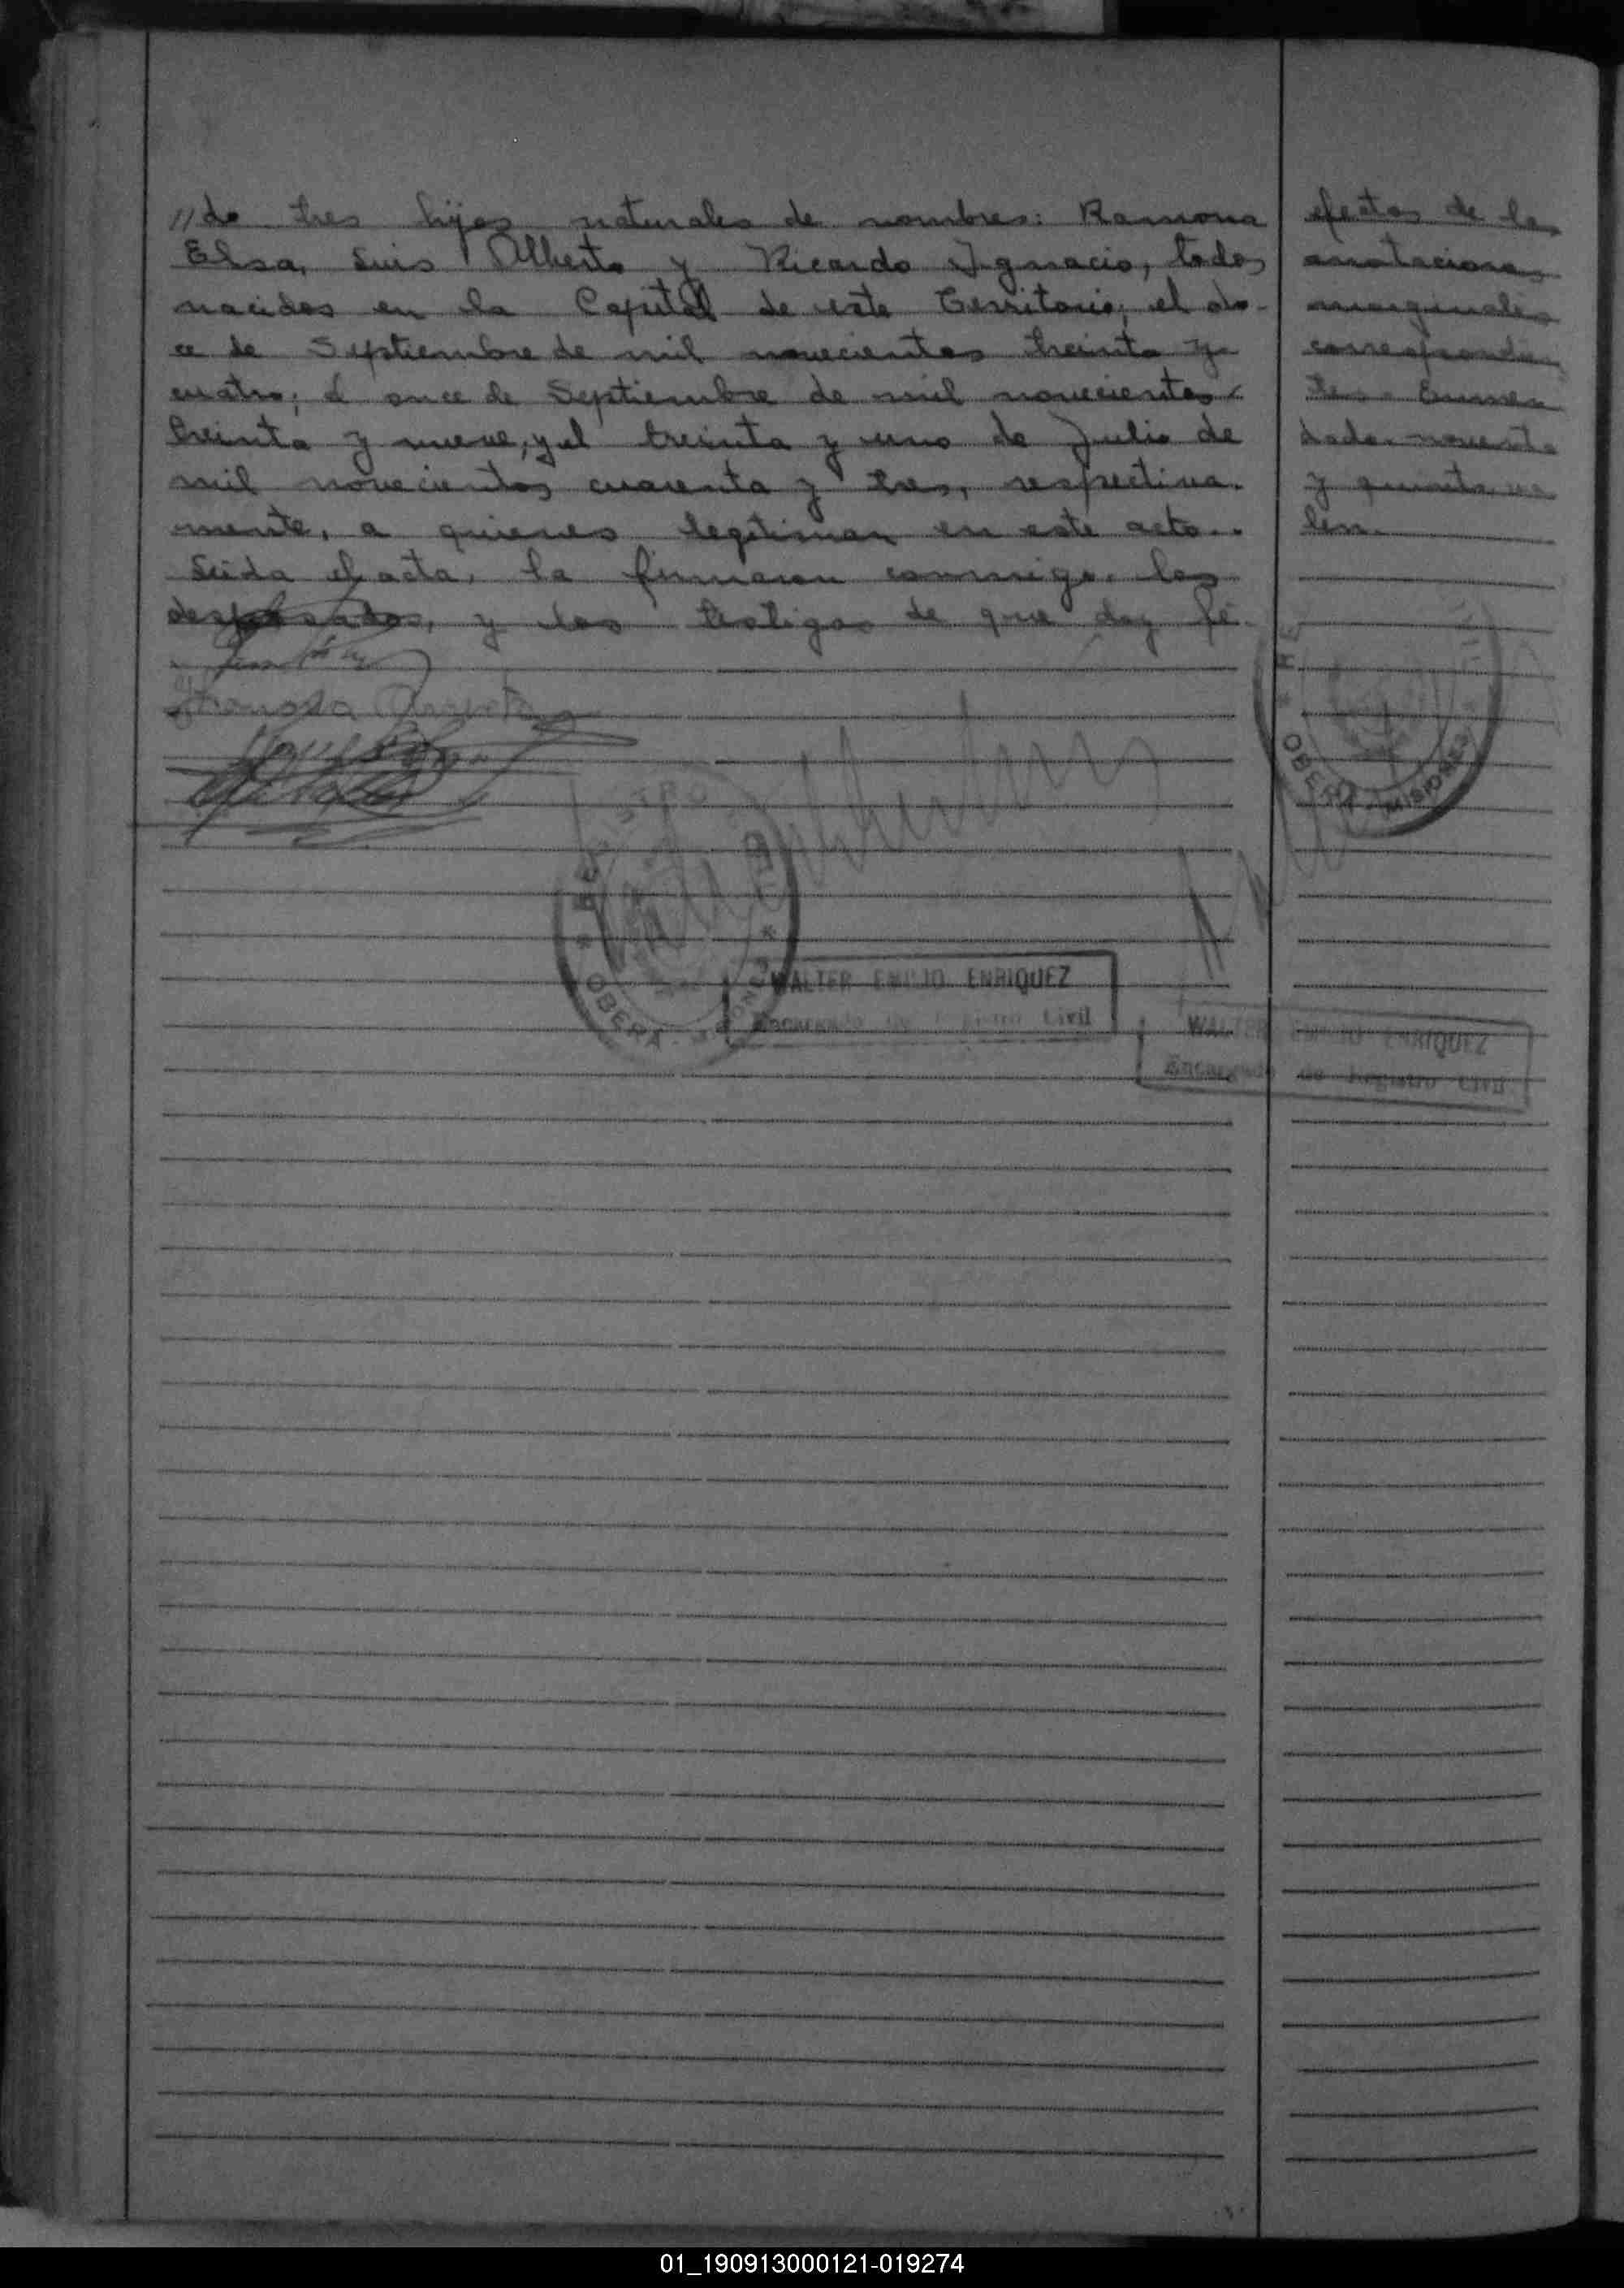 //do tres hijos naturales de nombres: Ramona
Elsa, Luis Alberto y Ricardo Ignacio, todos
nacidos en la Capital de este Territorio, el do-
ce de Septiembre de mil novecientos treinta y
cuatro; el once de Septiembre de mil novecientos
treinta y nueve, y el treinta y uno de Julio de
mil novecientos cuarenta y tres, respectiva-
mente, a quienes legitiman en este acto.-
Leida el acta, la firmaron conmigo, los
desposados, y los testigos de que doy fé.
efectos de las
anotaciones
marginales
correspondien
tes.- Enmen
dado: noventa
y quinto, va
len.-
REGISTRO
OBERA - MISIONES
WALTER EMILIO ENRIQUEZ
Encargado de Registro Civil
OBERA - MISIONES
WALTER EMILIO ENRIQUEZ
Encargado de Registro Civil
01_190913000121-019274